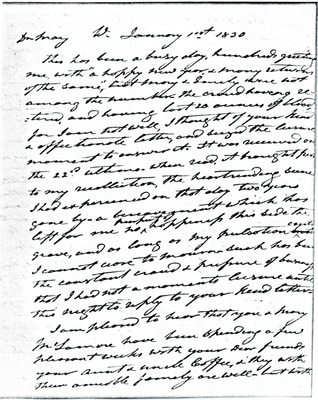 Dr Mary W. January 1rst 1830
This has been a busy day, hundreds greeting
me, with "a happy new year & many returns
of the same," but mary & Emily were not
among the number. the crowd having re-
tired, and having lost 20 ounces of blood,
for I am not well, I thought of your kind
& affectionate letter, and seized the leisure
moment to answer it. It was received on
the 22nd ultimo. when read, it brought fresh
to my recollection, the heartrending scene
I had experienced on that day two years
gone by - a bereavement which has
left for me no happiness this side the
grave, and as long as my pulsation
I cannot cease to mourn. Such has been
the constant crowd & pressure of business
that I had not a moments leisure until
this night to reply to your kind letter.
I am pleased to hear that you & Mary
McLamore have been spending a few
pleasant weeks with your dear friends
your aunt & uncle Coffee, & they with
their amiable family are well - but with